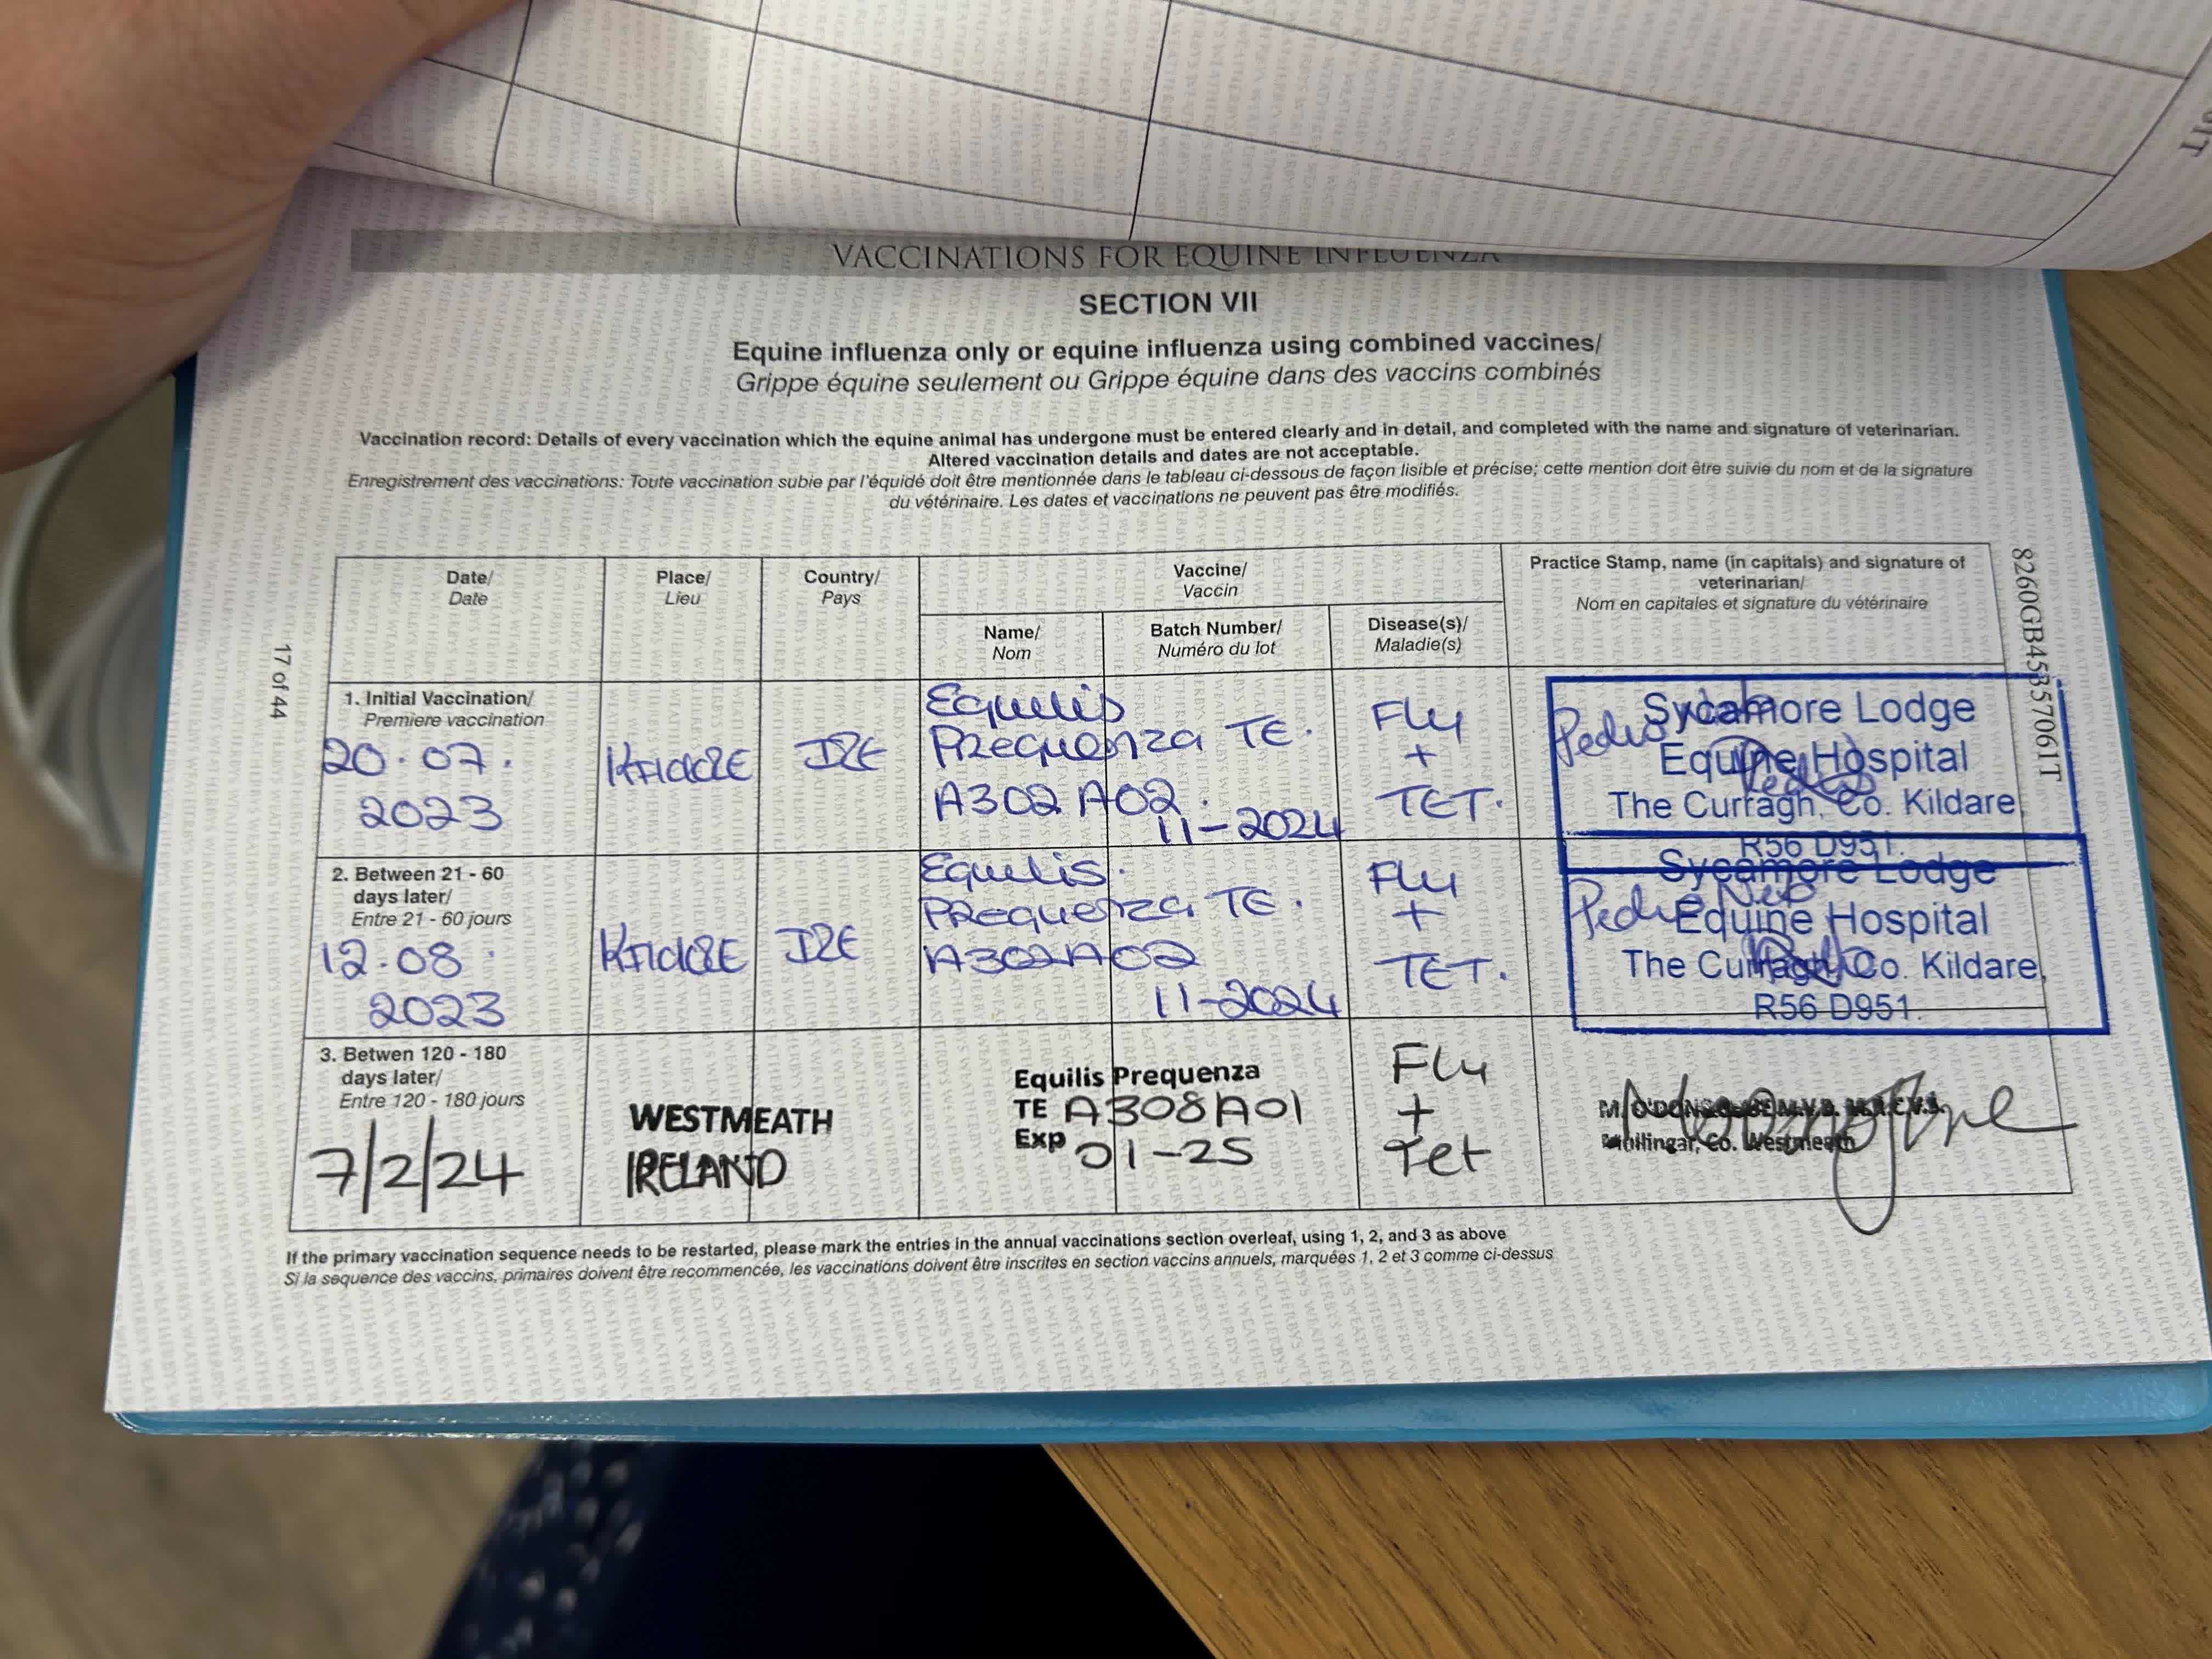 VACCINATIONS FOR EQUINE INFLUENZA
SECTION VII
Equine influenza only or equine influenza using combined vaccines/
Grippe équine seulement ou Grippe équine dans des vaccins combinés
Vaccination record: Details of every vaccination which the equine animal has undergone must be entered clearly and in detail, and completed with the name and signature of veterinarian.
Altered vaccination details and dates are not acceptable.
Enregistrement des vaccinations: Toute vaccination subie par l'équidé doit être mentionnée dans le tableau ci-dessous de façon lisible et précise; cette mention doit être suivie du nom et de la signature
du vétérinaire. Les dates et vaccinations ne peuvent pas être modifiés.
17 of 44
8260GB45357061T
Date/
Date
Place/
Lieu
Country/
Pays
Vaccine/
Vaccin
Name/
Nom
Batch Number/
Numéro du lot
Disease(s)/
Maladie(s)
Practice Stamp, name (in capitals) and signature of
veterinarian/
Nom en capitales et signature du vétérinaire
1. Initial Vaccination/
Premiere vaccination
20.07.
2023
KildaRE
IRE
Equilis
PRequenza TE.
A302A02.
11-2024
Flu
+
TET.
Pedro
Sycamore Lodge
Equine Hospital
The Curragh, Co. Kildare
R56 D951.
2. Between 21 - 60
days later/
Entre 21 - 60 jours
12.08.
2023
KildaRE
IRE
Equilis.
PRequenza TE.
A302A02
11-2024
Flu
+
TET.
Pedro
Sycamore Lodge
Equine Hospital
The Curragh, Co. Kildare,
R56 D951.
3. Betwen 120 - 180
days later/
Entre 120 - 180 jours
7/2/24
WESTMEATH
IRELAND
Equilis Prequenza
TE A308A01
Exp 01-25
Flu
+
Tet
Mullingar, Co. Westmeath
If the primary vaccination sequence needs to be restarted, please mark the entries in the annual vaccinations section overleaf, using 1, 2, and 3 as above
Si la sequence des vaccins, primaires doivent être recommencée, les vaccinations doivent être inscrites en section vaccins annuels, marquées 1, 2 et 3 comme ci-dessus